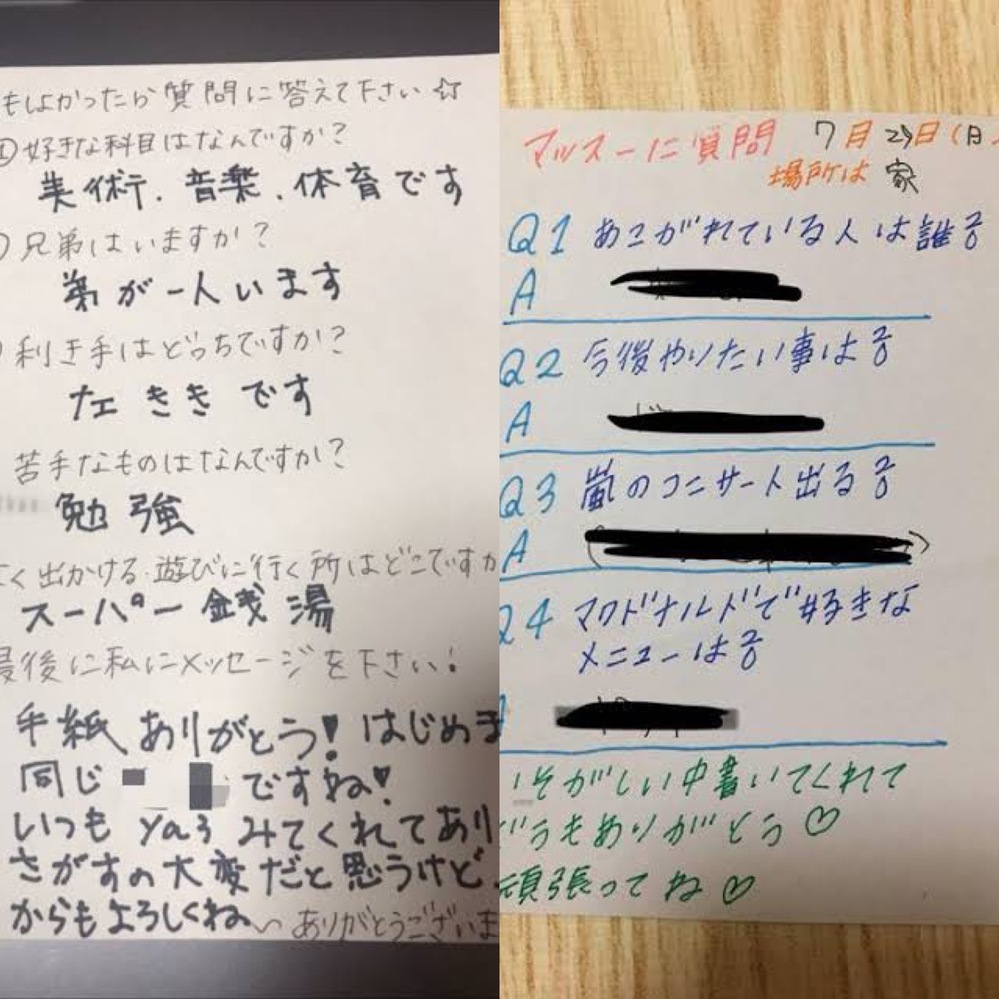 もしよかったら質問に答えて下さい☆
①好きな科目はなんですか?
美術.音楽.体育です
兄弟はいますか?
弟が一人います
利き手はどっちですか?
左ききです
苦手なものはなんですか?
勉強
く出かける.遊びに行く所はどこですか
スーパー銭湯
最後に私にメッセージを下さい!
手紙ありがとう!はじめま
同じ ですね!
いつも ya3 みてくれてあり
さがすの大変だと思うけど
からもよろしくね〜
ありがとうございま
マッスーに質問 7月29日(日
場所は 家
Q1 あこがれている人は誰?
A
Q2 今後やりたい事は?
A
Q3 嵐のコンサート出る?
A
Q4 マクドナルドで好きな
メニューは?
いそがしい中書いてくれて
どうもありがとう♡
頑張ってね♡